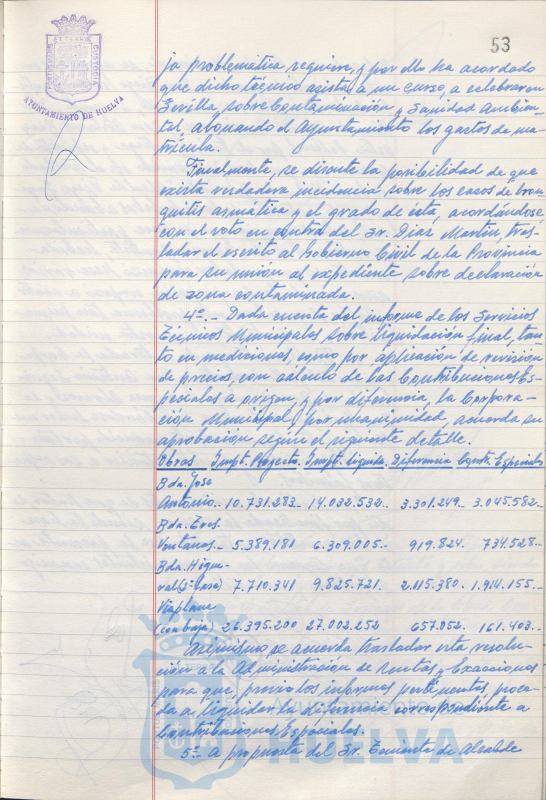 53
AYUNTAMIENTO DE HUELVA
ja problemática requiere, y por ello ha acordado
que dicho técnico asista a un curso, a celebrar en
Sevilla, sobre Contaminación y Sanidad Ambien-
tal, abonando el Ayuntamiento los gastos de ma-
trícula.
Finalmente, se discute la posibilidad de que
exista verdadera incidencia sobre los casos de bron-
quitis asmática y el grado de ésta, acordándose
con el voto en contra del Sr. Díaz Martín, tras-
ladar el escrito al Gobierno Civil de la Provincia
para su unión al expediente sobre declaración
de zona contaminada.
4º.- Dada cuenta del informe de los Servicios
Técnicos Municipales sobre liquidación final, tan-
to en mediciones, como por aplicación de revisión
de precios, con cálculo de las Contribuciones Es-
peciales a origen, y por diferencia, la Corpora-
ción Municipal, por unanimidad, acuerda su
aprobación según el siguiente detalle.
Obras Impt. Proyecto. Impt. líquida. Diferencia Contr. Especiales
Bda. José
Antonio.. 10.731.283.- 14.032.532.. 3.301.249.. 3.045.582.-
Bda. Tres
Ventanas.- 5.389.181 6.309.005.- 919.824. 734.528.-
Bda. Higue-
ral (2ª fase) 7.710.341 9.825.721. 2.115.380. 1.914.155.-
Viaplana
(con baja) 26.395.200 27.002.252 657.052. 161.403.-
Asimismo se acuerda trasladar esta resolu-
ción a la Administración de Rentas y Exacciones
para que, previo los informes pertinentes, proce-
da a liquidar la diferencia correspondiente a
Contribuciones Especiales.
5º- A propuesta del Sr. Teniente de Alcalde
HUELVA